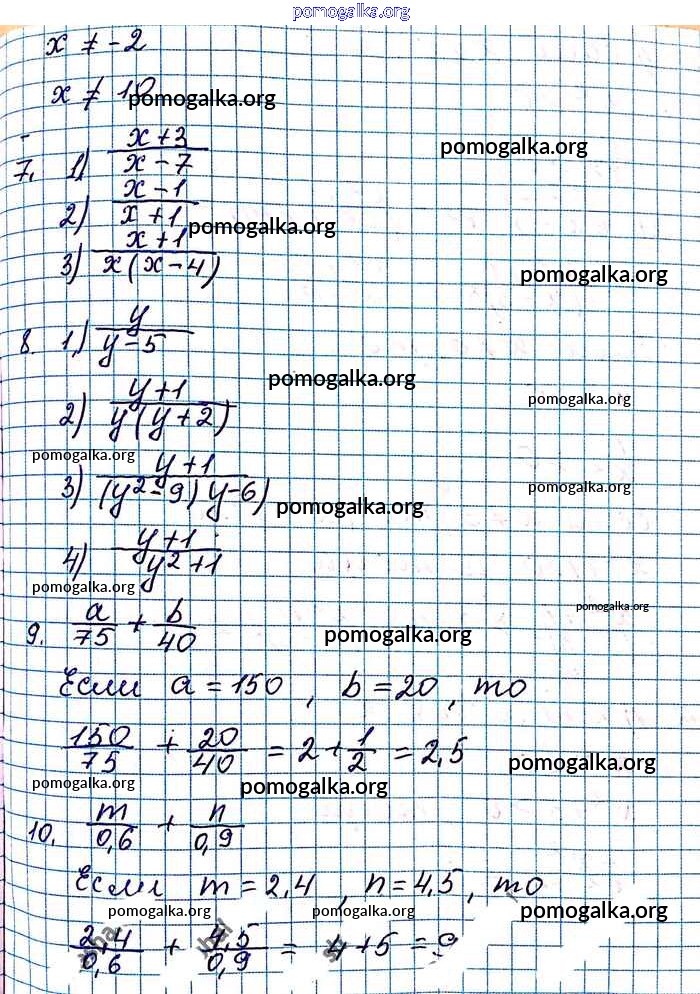 pomogalka.org
x ≠ -2
x ≠ 10
pomogalka.org
pomogalka.org
7. 1) (x+3)/(x-7)
2) (x-1)/(x+1)
pomogalka.org
3) (x+1)/(x(x-4))
pomogalka.org
8. 1) y/(y-5)
pomogalka.org
2) (y+1)/(y(y+2))
pomogalka.org
pomogalka.org
3) (y+1)/((y²-9)(y-6)
pomogalka.org
pomogalka.org
4) (y+1)/(y²+1)
pomogalka.org
pomogalka.org
9. a/75 + b/40
pomogalka.org
Если a = 150, b = 20, то
150/75 + 20/40 = 2 + 1/2 = 2,5
pomogalka.org
pomogalka.org
pomogalka.org
10. m/0,6 + n/0,9
Если m = 2,4, n = 4,5, то
pomogalka.org
pomogalka.org
pomogalka.org
2,4/0,6 + 4,5/0,9 = 4 + 5 = 9